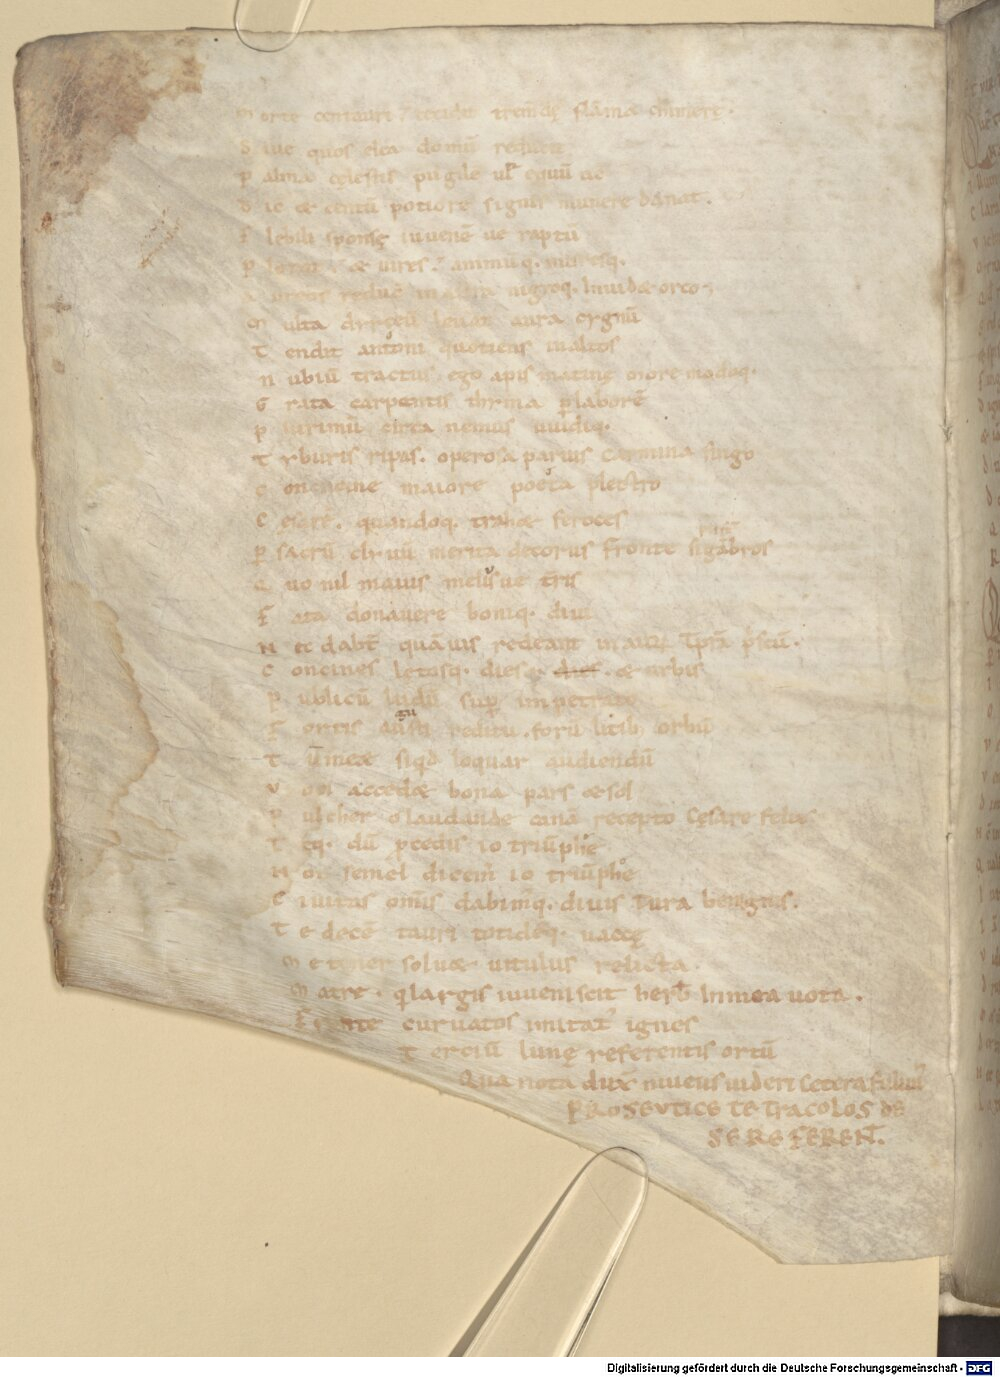 M orte centauri / cecidit tremdę flāma chimerę.
S iue quos elea domū reducit
P alma cęlestis pugilē ul' equū ue
D ic & centū potiore signis munere donat.
F lebili sponsę iuuenē ue raptū
P lorat & uires animūq. moresq.
A ureos reduc̄ in astra nigroq. Inuid& orco
M ulta dirceū leuat aura cygnū
T endit antoni quotiens in altos
N ubiū tractus ego apis matinę more modoq.
G rata carpentis thima p laborē
P lurimū circa nemus uuidiq.
T yburis ripas. operosa paruus carmina fingo
C oncine maiore poeta plectro
C esarē. quandoq. trah& feroces
P sacrū cliuū merita decorus fronte sigābros
Q uo nil maius meliusue tr̄ris
F ata donauere boniq. diui
N ec dabt̄ quāuis redeant in aurū
C oncines letosq. dies & dies. & urbis
P ublicū ludū sup impetrato
F ortis augusti reditu. forū litib; orbū
T ū meæ siqd loquar audiendū
V ocis acced& bona pars & sol
P ulcher o laudande canā recepto Cęsare felix
T eq. dū pcedis io triūphe
N on semel dicem̄ io triūphe
C iuitas om̄is dabim̄q. diuis Tura benignis.
T e decē tauri totidēq. uaccę
M e tener solu& uitulus relicta.
M atre. q largis iuuenescit herb̄ In mea uota.
F ronte curuatos imitat' ignes
T erciū lunę referentis ortū
Qua nota dux̄ niueus uideri Cetera fuluus
PROSEVTICE TETRACOLOS DE
SE REFEREN̄T.
Digitalisierung gefördert durch die Deutsche Forschungsgemeinschaft - DFG